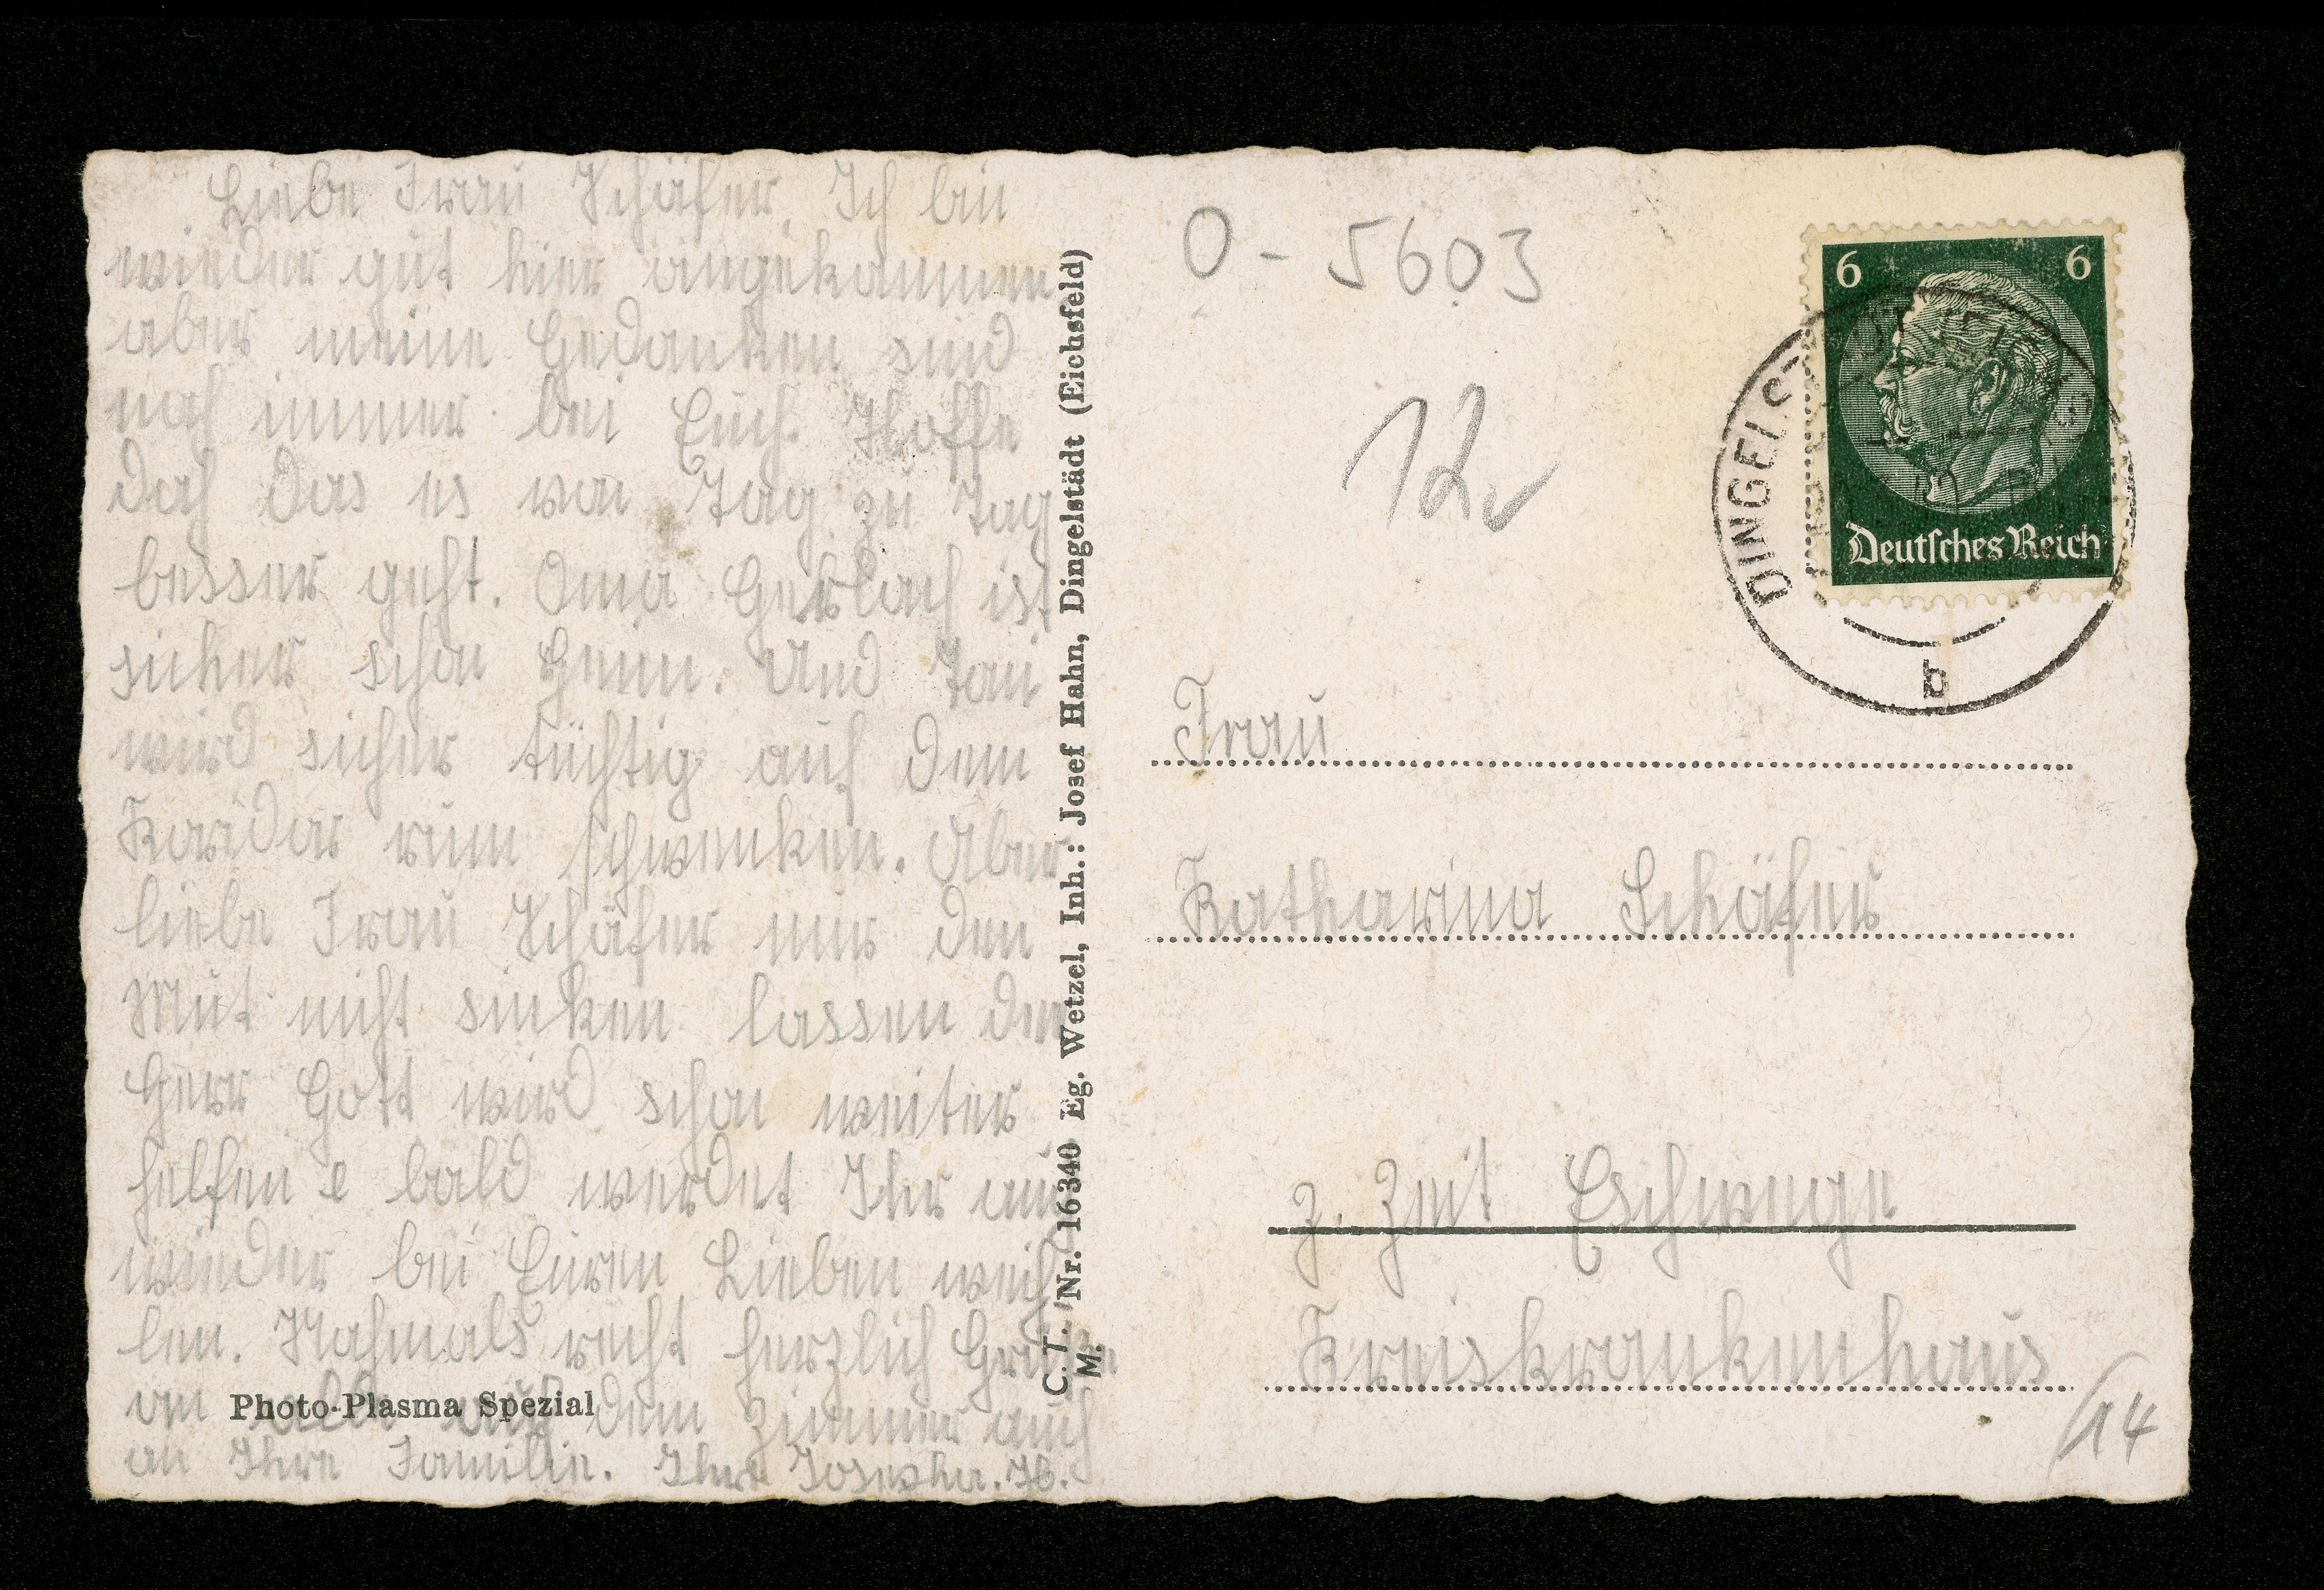 Liebe Frau Schäfer. Ich bin
wieder gut hier angekommen
aber meine Gedanken sind
noch immer bei Euch. Hoffe
doch das es von Tag zu Tag
besser geht. Oma Gerlach ist
sicher schon Heim. Und Toni
wird sicher tüchtig auf dem
Koridor rum schwenken. Aber
liebe Frau Schäfer nur den
Mut nicht sinken lassen der
Herr Gott wird schon weiter
helfen e bald werdet Ihr auch
wieder bei Euren Lieben weih
len. Nochmals recht herzlich Grüße
an alle auf dem Zimmer auch
an Ihre Familie. Ihre Josepha. H.
Photo-Plasma Spezial
C. T. Nr. 16340 Eg. Wetzel, Inh.: Josef Hahn, Dingelstädt (Eichsfeld)
M.
O - 5603
12
6 6
Deutsches Reich
DINGELST
b
Frau
Katharina Schäfer
z. Zeit Eschwege
Kreiskrankenhaus
/14